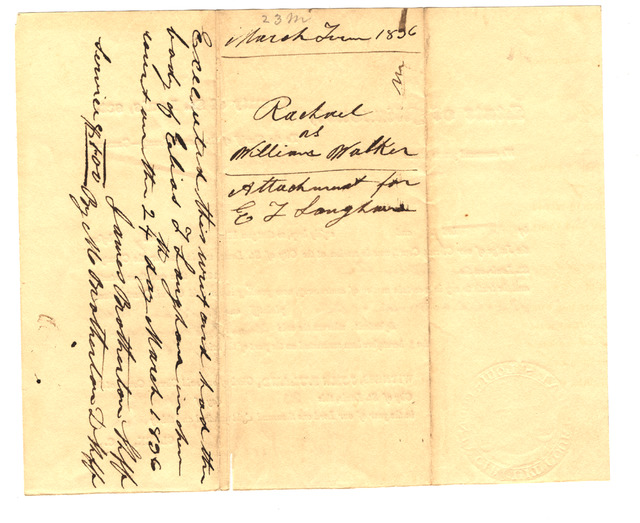 23 m
March Term 1836
Rachael
vs
William Walker
Attachment for
E T Langham
Executed this writ and had the
body of Elias T Langham in open
court on the 24th day March 1836
James Brotherton Shff
Service $1.00 By M Brotherton D Shff